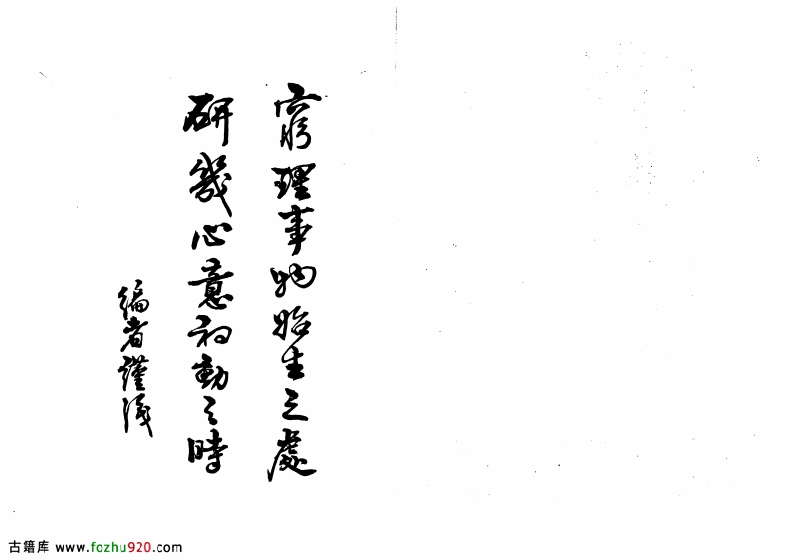 窮理事物始生之處
研幾心意初動之時
編者謹識
古籍库 www.fozhu920.com